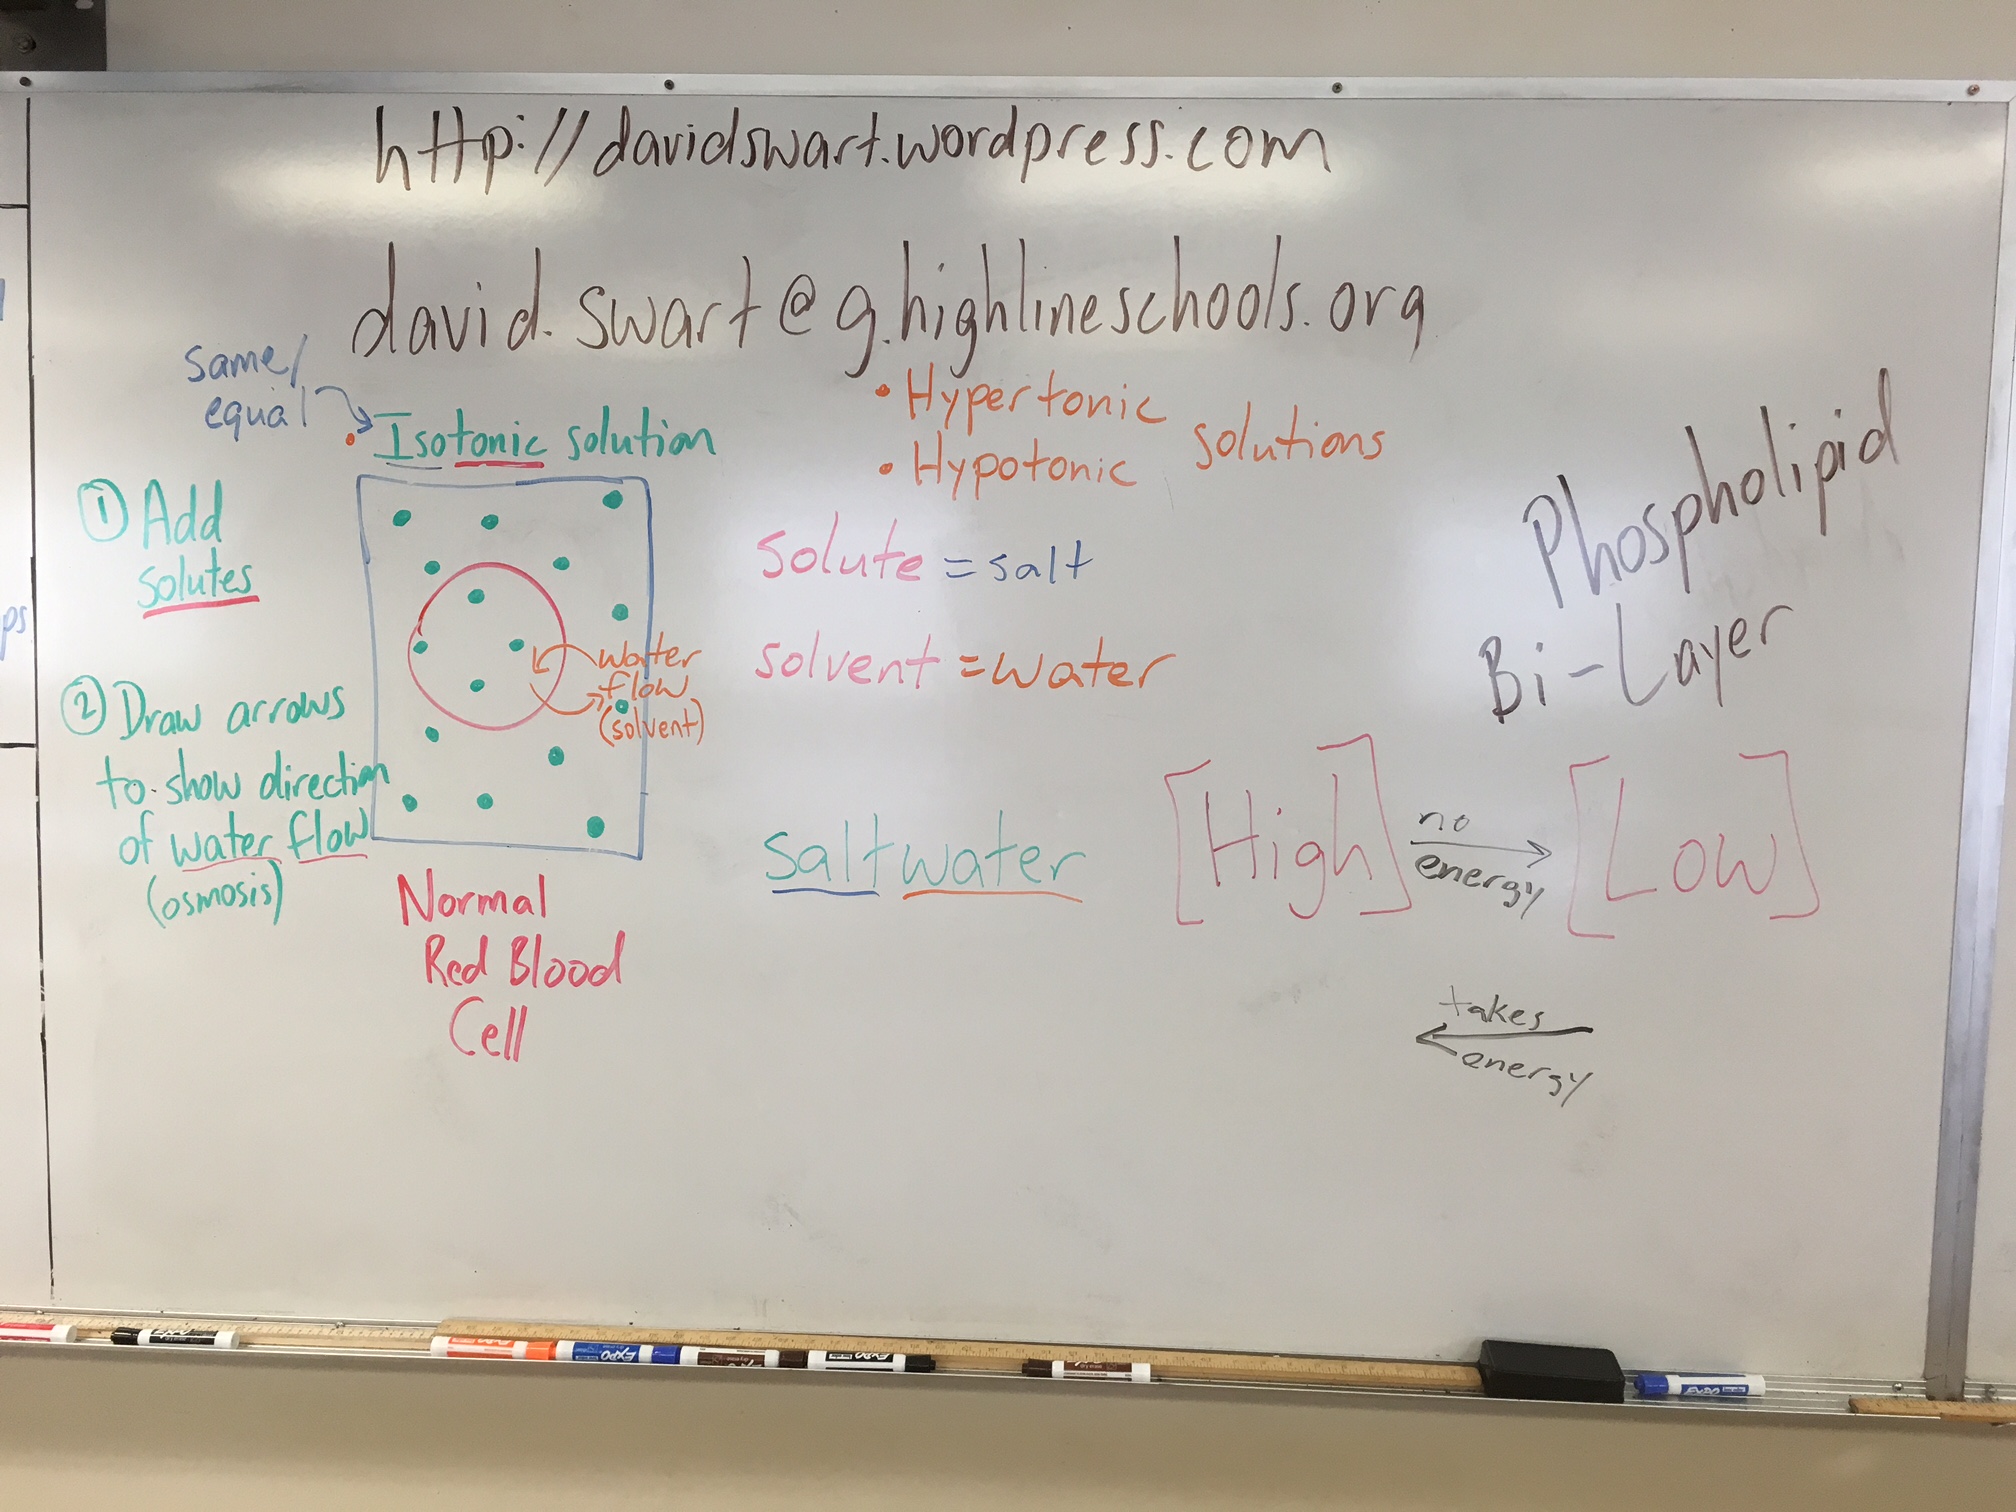 http://davidswart.wordpress.com
david.swart@g.highlineschools.org
same/
equal
• Isotonic solution
• Hypertonic
• Hypotonic
solutions
① Add
solutes
② Draw arrows
to show direction
of water flow
(osmosis)
water
flow
(solvent)
Normal
Red Blood
Cell
solute = salt
solvent = water
saltwater
Phospholipid
Bi-Layer
[High]
no
energy
[Low]
takes
energy
ps
EXPO
EXPO
EXPO